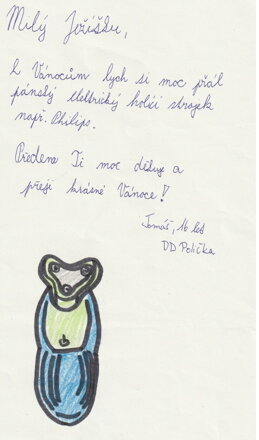 Milý Ježíšku,
k Vánocům bych si moc přál
pánský elektrický holicí strojek
např. Philips.
Předem Ti moc děkuji a
přeji krásné Vánoce!
Tomáš, 16 let
DD Polička